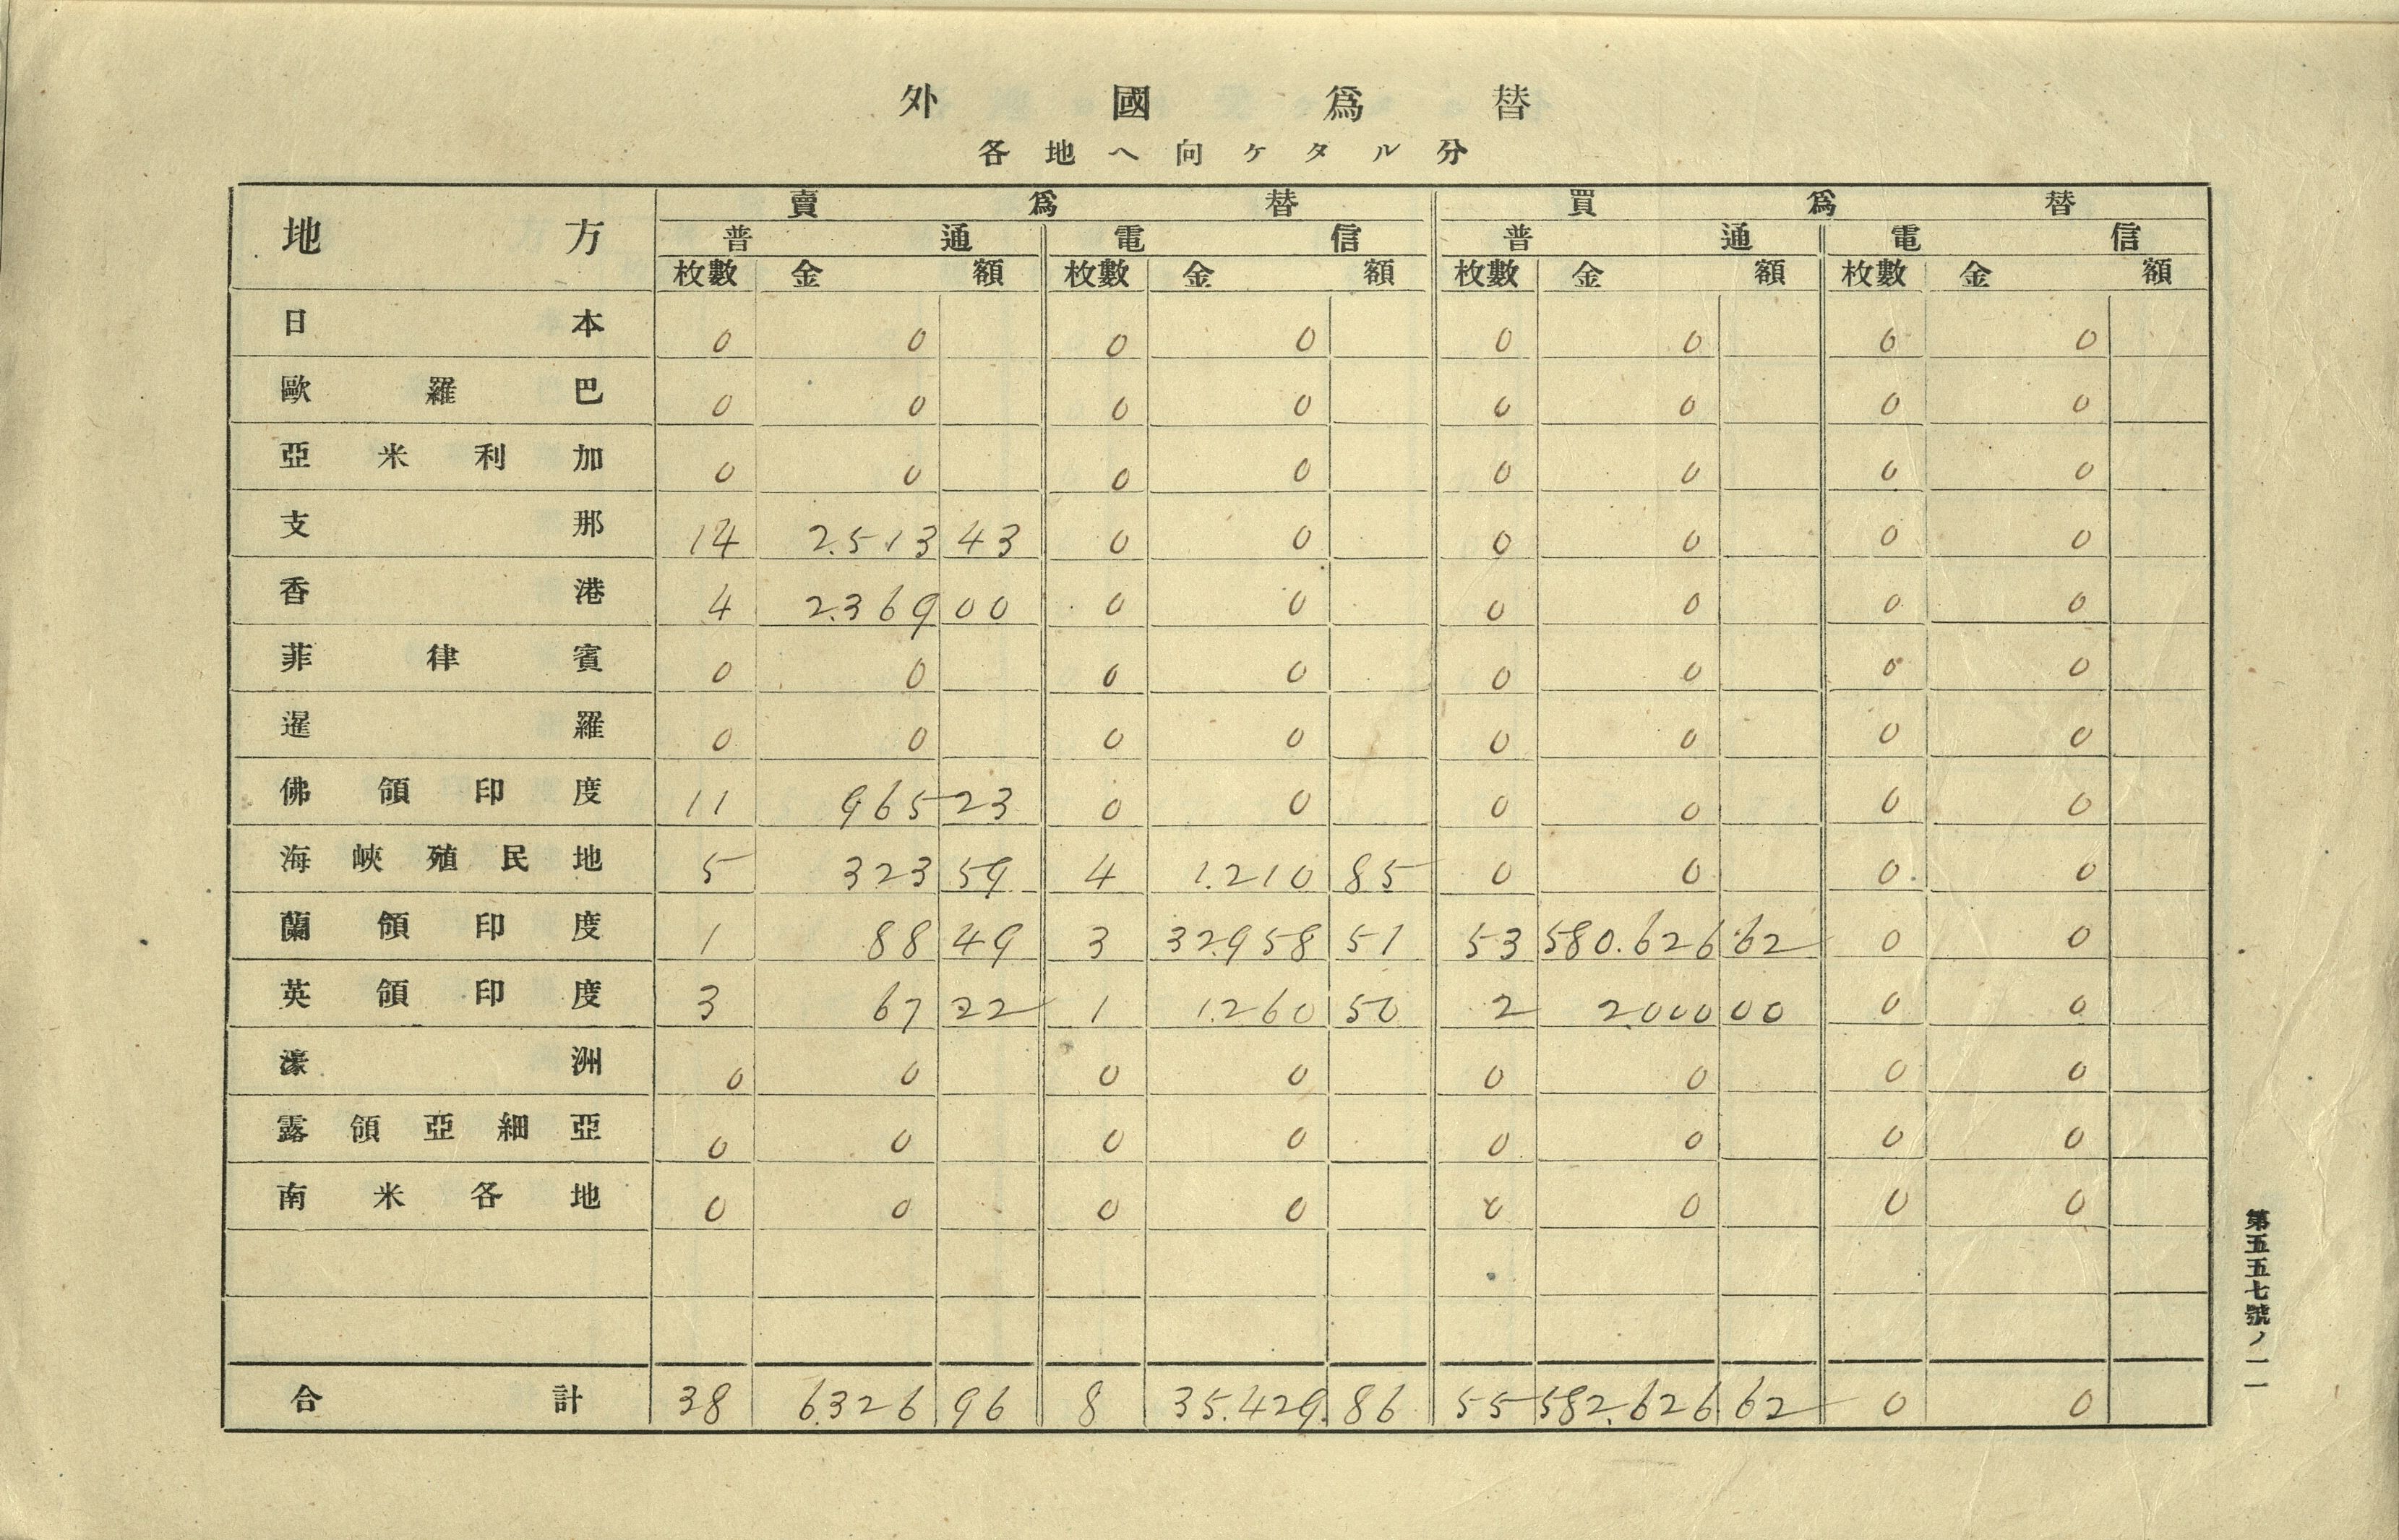 外國爲替
各地ヘ向ケタル分
地方 賣爲替 買爲替
普通 電信 普通 電信
枚數 金額 枚數 金額 枚數 金額 枚數 金額
日本 0 0 0 0 0 0 0 0
歐羅巴 0 0 0 0 0 0 0 0
亞米利加 0 0 0 0 0 0 0 0
支那 14 2.513 43 0 0 0 0 0 0
香港 4 2.369 00 0 0 0 0 0 0
菲律賓 0 0 0 0 0 0 0 0
暹羅 0 0 0 0 0 0 0 0
佛領印度 11 965 23 0 0 0 0 0 0
海峽殖民地 5 323 59 4 1.210 85 0 0 0 0
蘭領印度 1 88 49 3 32.958 51 53 580.626 62 0 0
英領印度 3 67 22 1 1.260 50 2 2.000 00 0 0
濠洲 0 0 0 0 0 0 0 0
露領亞細亞 0 0 0 0 0 0 0 0
南米各地 0 0 0 0 0 0 0 0
合計 38 6.326 96 8 35.429. 86 55 582.626 62 0 0
第五五七號ノ一一